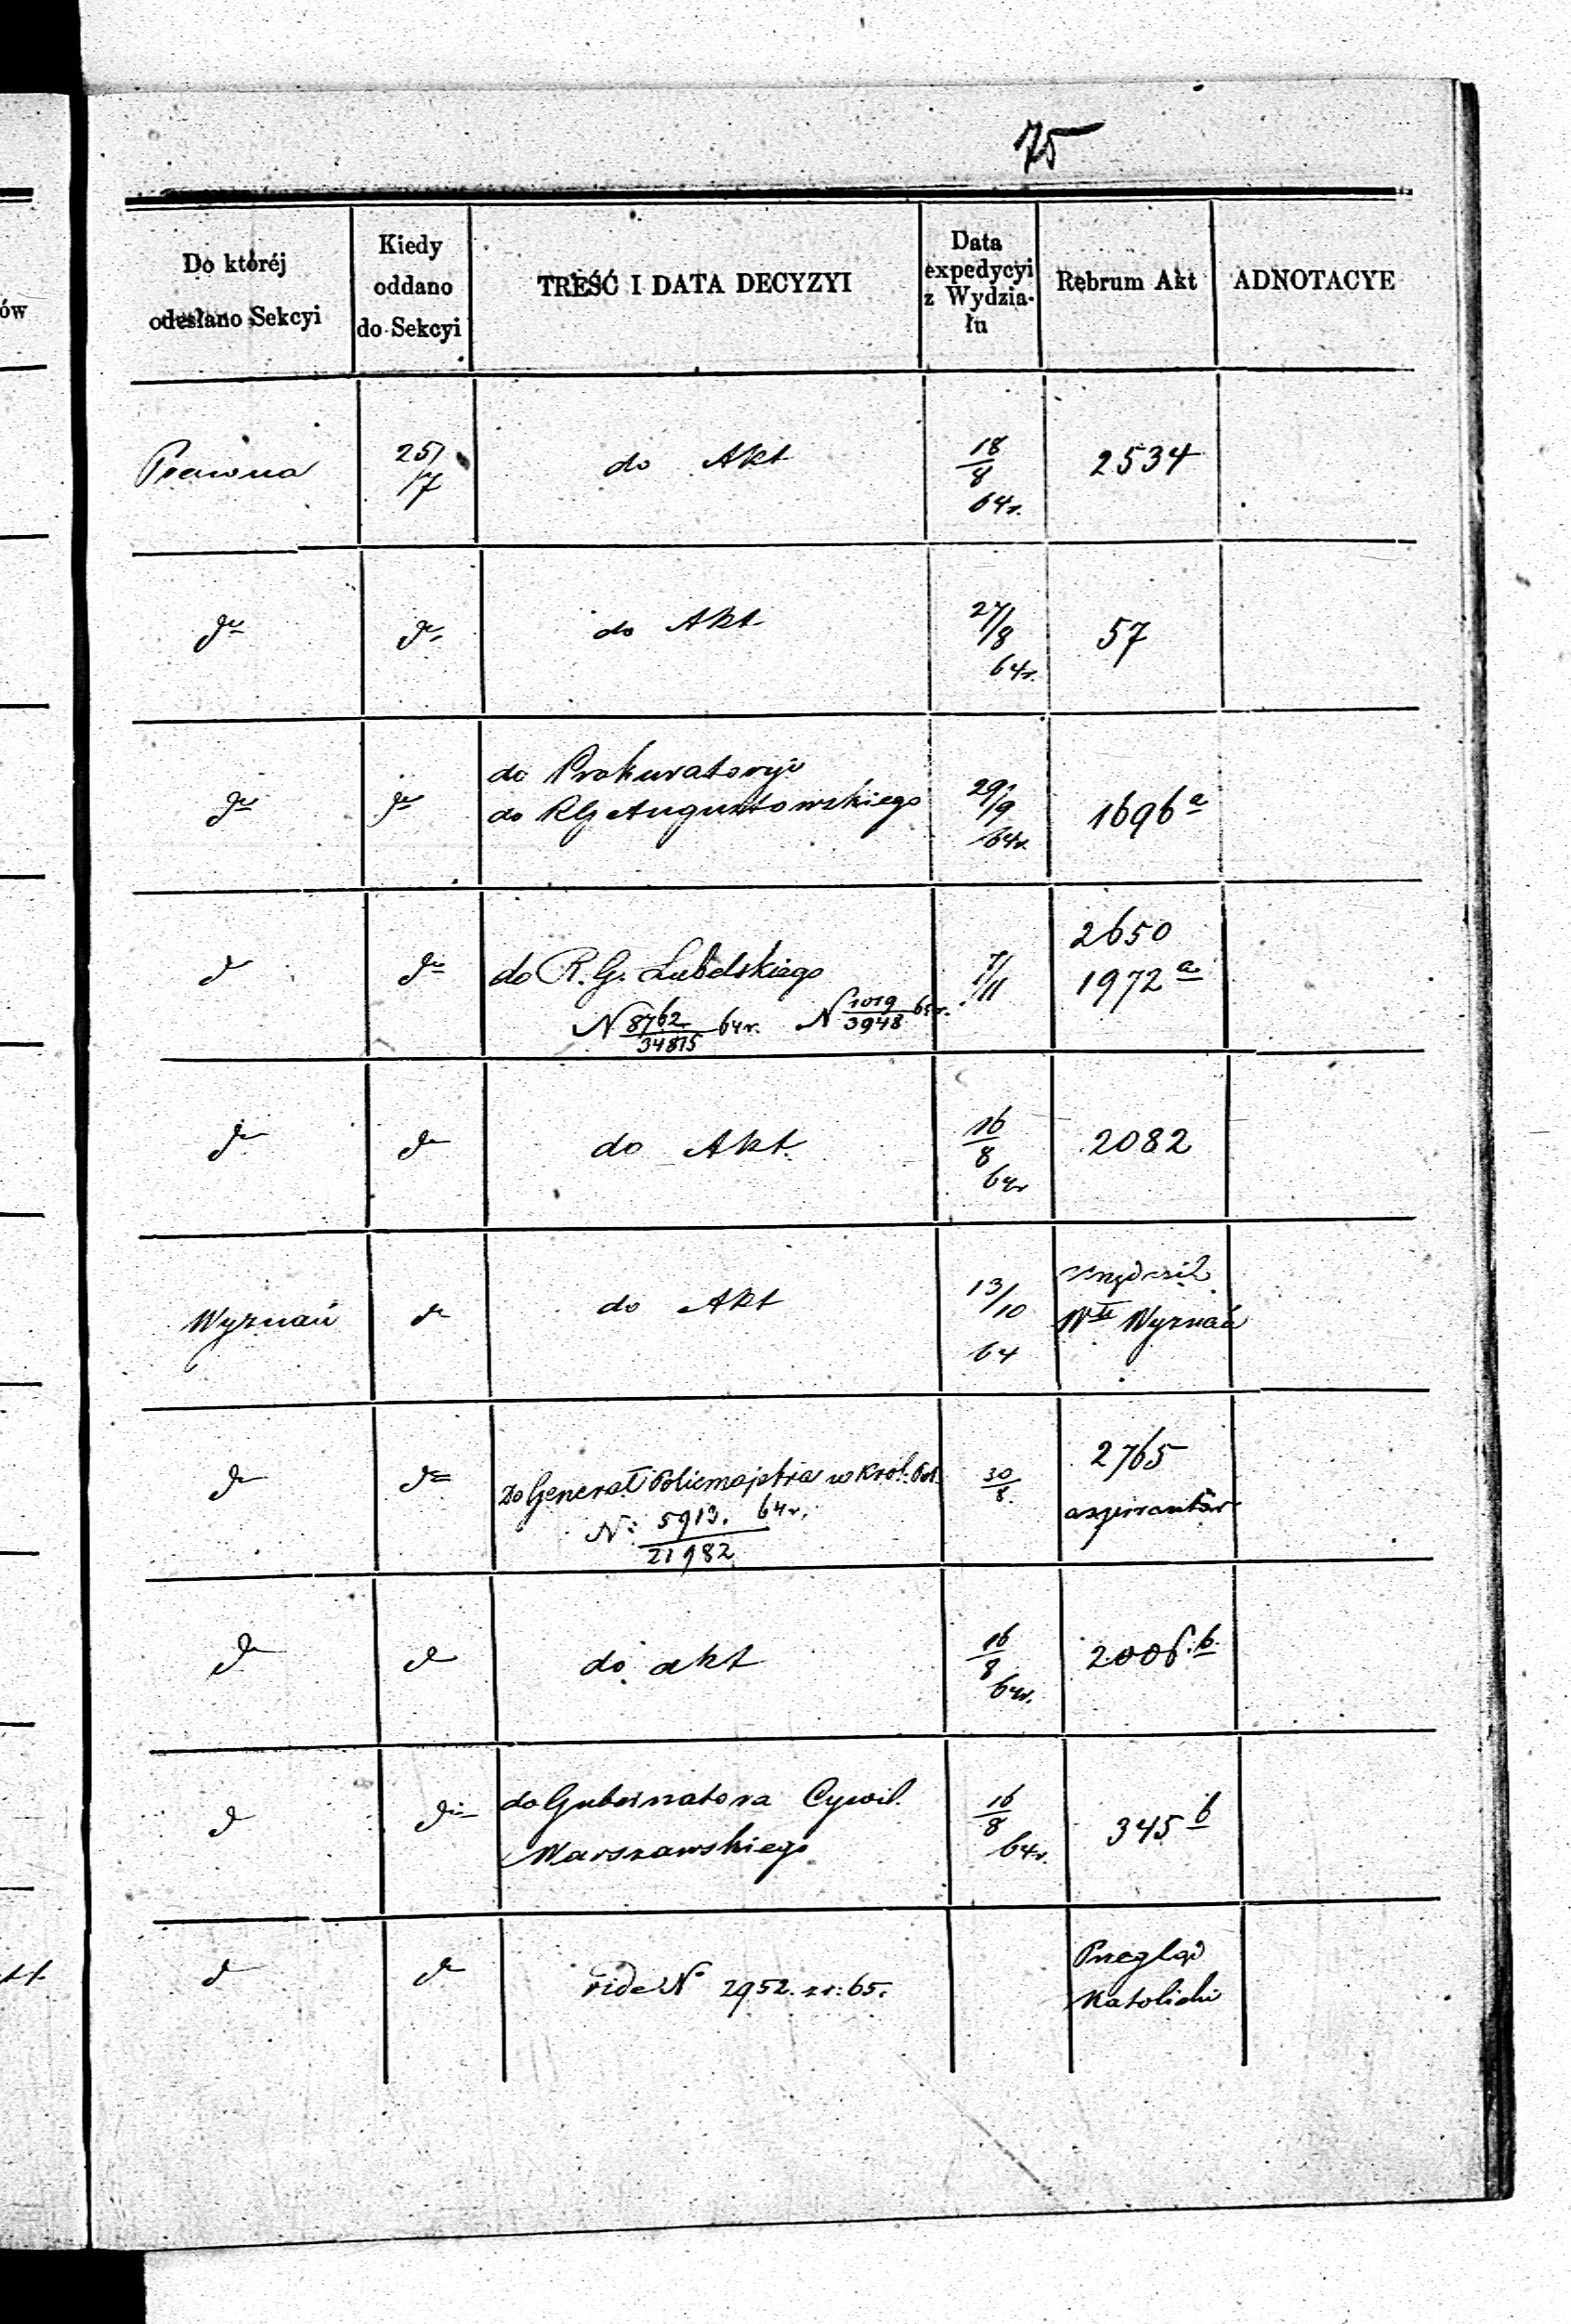 75
Do któréj
odesłano Sekcyi
Kiedy
oddano
do Sekcyi
TREŚĆ I DATA DECYZYI
Data
expedycyi
z Wydzia-
łu
Rebrum Akt
ADNOTACYE
ów
Prawna
25/7
do Akt
18/8
64r.
2534
do
do
do Akt
27/8
64r.
57
do
do
do Prokuratoryi
do RG Augustowskiego
29/9
64r
1696 a
do
do
do R. G. Lubelskiego
N 8762/34815 64r. N 1019/3948 65r.
7/11
2650
1972 a
do
do
do Akt.
16/8
64r
2082
Wyznań
do
do Akt
13/10
64
Wyznań
do
do
Do Generał Policmajstra w Król: Pol.
N: 5913. 64r.
21982
30/8.
2765
aspirantów
do
do
do akt
16/8
64r.
2006. b.
do
do
do Gubernatora Cywil.
Warszawskiego
16/8
64r.
345 b
do
do
vide No 2952. zr: 65.
Przegląd
Katolicki